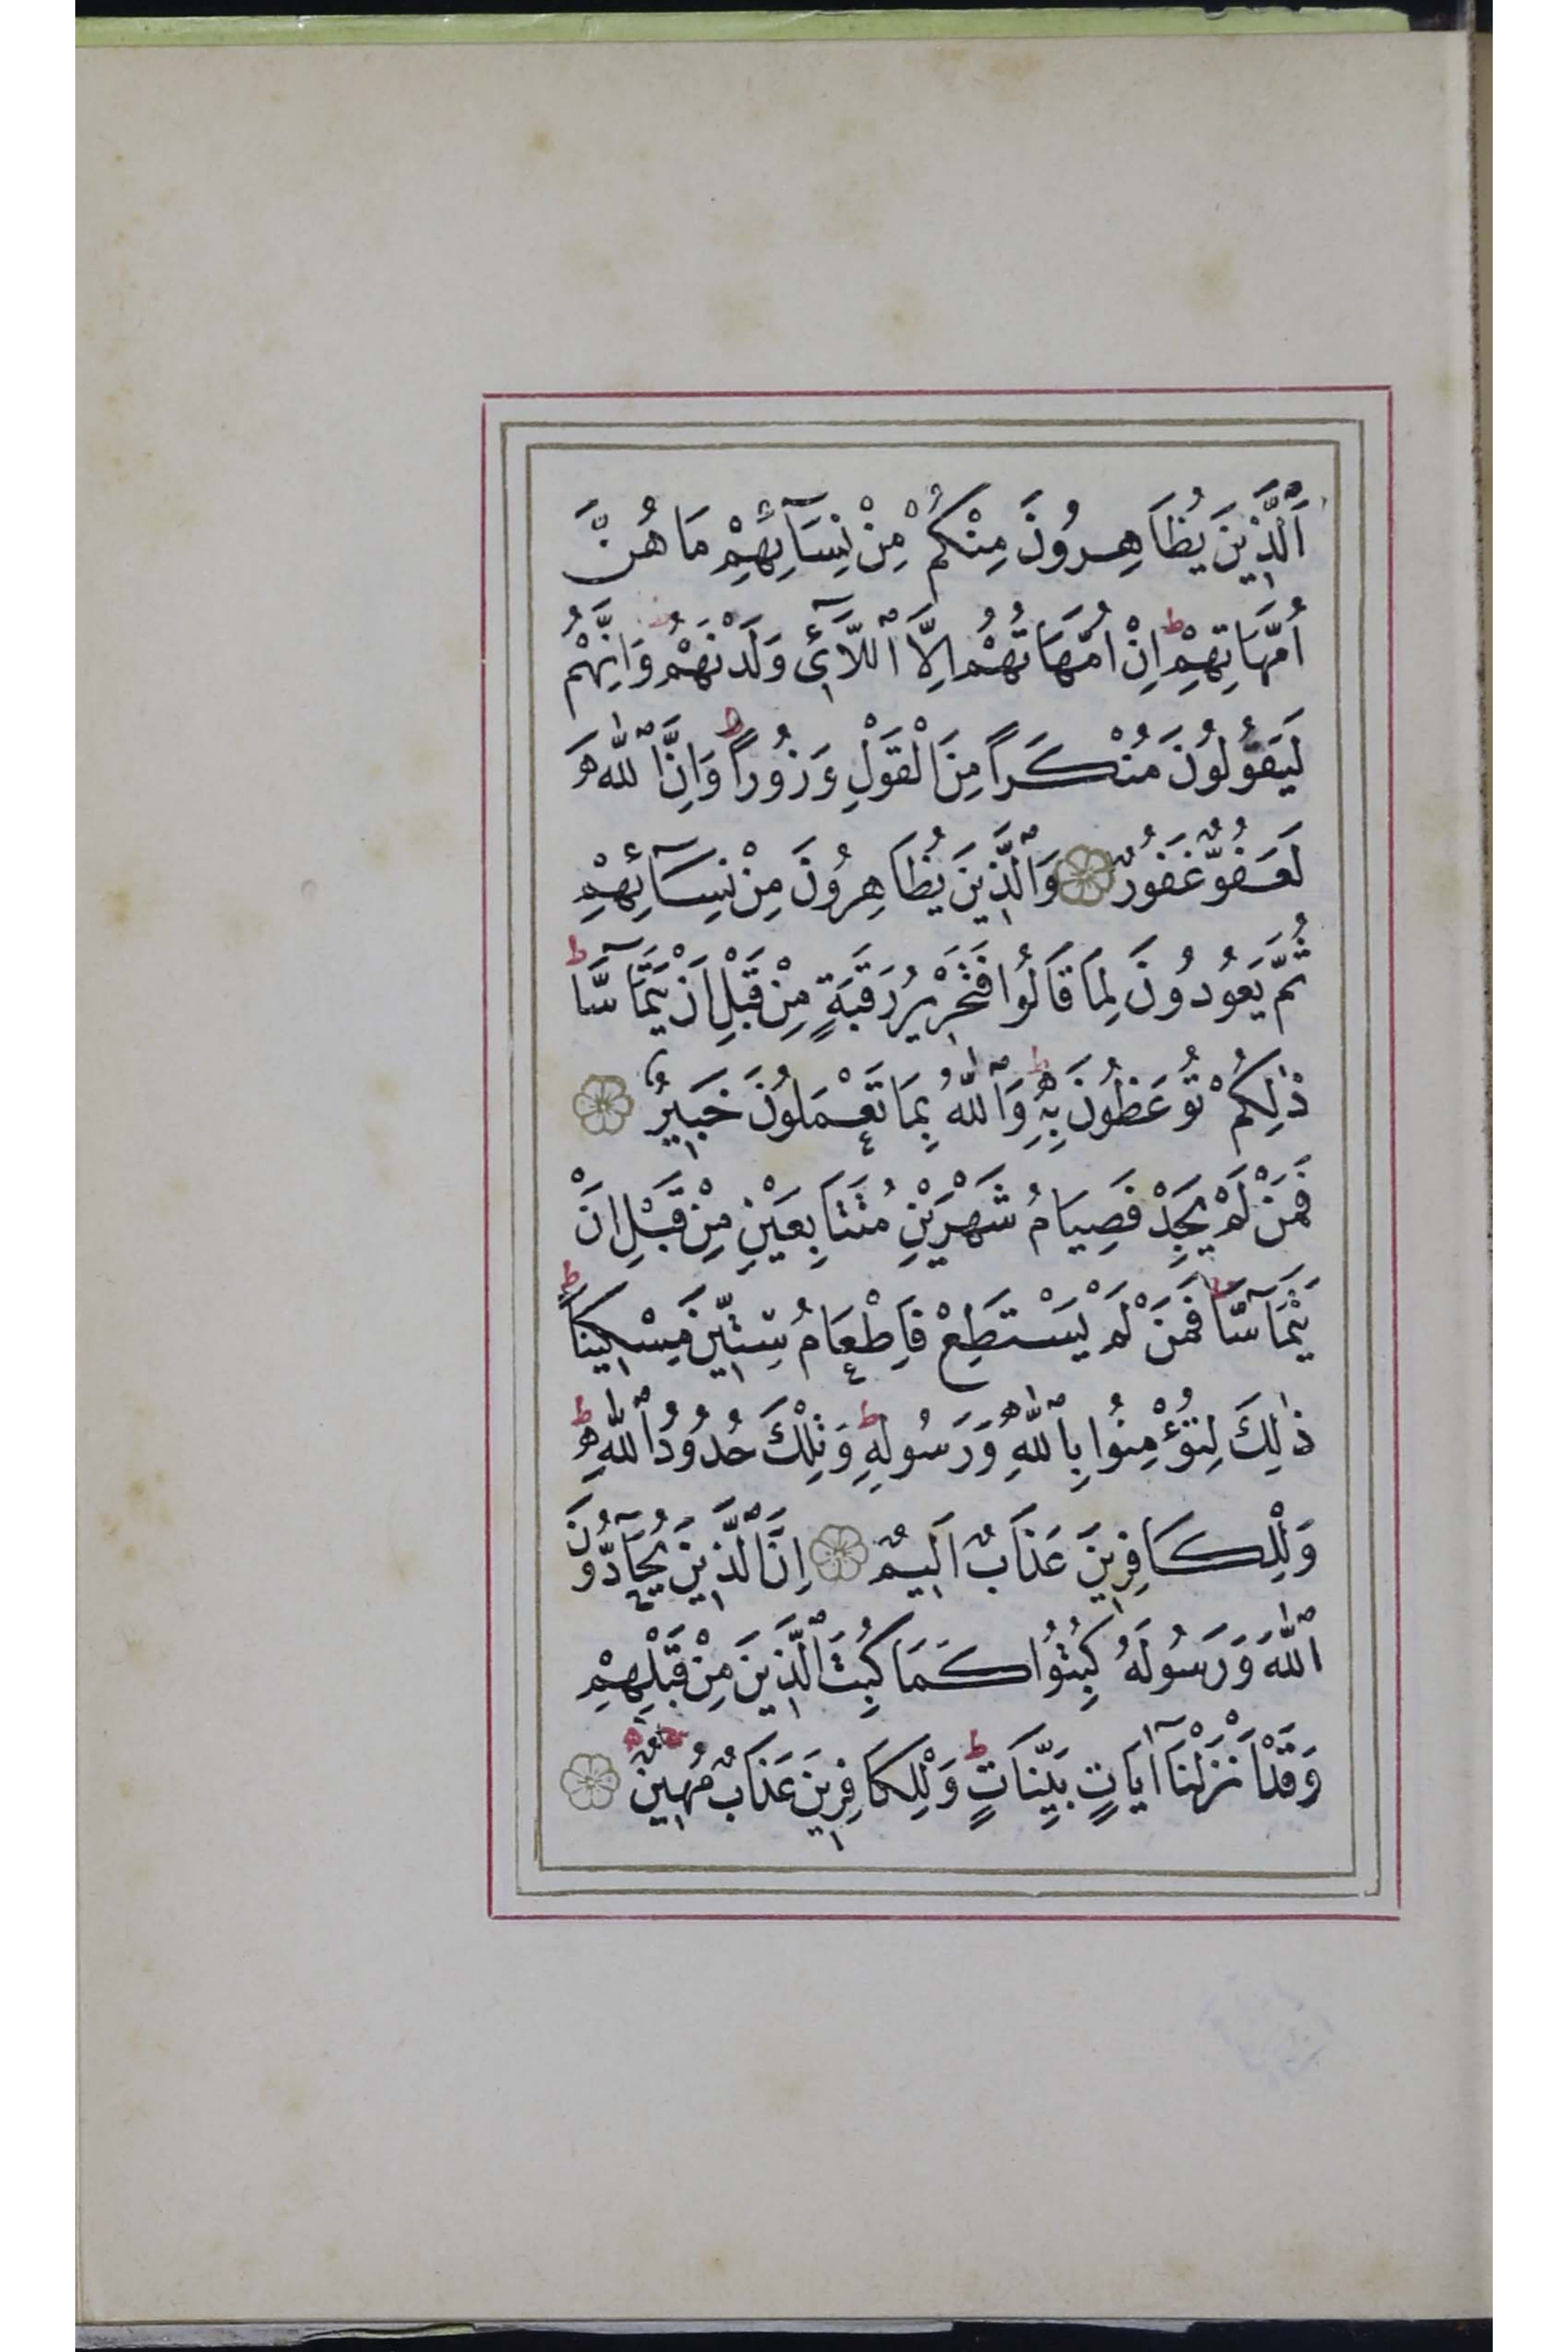 اَلَّذ۪ينَ يُظَاهِرُونَ مِنْكُمْ مِنْ نِسَٓائِهِمْ مَا هُنَّ
اُمَّهَاتِهِمْۜ اِنْ اُمَّهَاتُهُمْ اِلَّا اللَّآئ۪ي وَلَدْنَهُمْۜ وَاِنَّهُمْ
لَيَقُولُونَ مُنْكَرًا مِنَ الْقَوْلِ وَزُورًاۜ وَاِنَّ اللّٰهَ
لَعَفُوٌّ غَفُورٌ ۝ وَالَّذ۪ينَ يُظَاهِرُونَ مِنْ نِسَٓائِهِمْ
ثُمَّ يَعُودُونَ لِمَا قَالُوا فَتَحْر۪يرُ رَقَبَةٍ مِنْ قَبْلِ اَنْ يَتَمَٓاسَّاۜ
ذٰلِكُمْ تُوعَظُونَ بِه۪ۜ وَاللّٰهُ بِمَا تَعْمَلُونَ خَب۪يرٌ ۝
فَمَنْ لَمْ يَجِدْ فَصِيَامُ شَهْرَيْنِ مُتَتَابِعَيْنِ مِنْ قَبْلِ اَنْ
يَتَمَٓاسَّاۜ فَمَنْ لَمْ يَسْتَطِعْ فَاِطْعَامُ سِتّ۪ينَ مِسْك۪ينًاۜ
ذٰلِكَ لِتُؤْمِنُوا بِاللّٰهِ وَرَسُولِه۪ۜ وَتِلْكَ حُدُودُ اللّٰهِۜ
وَلِلْكَافِر۪ينَ عَذَابٌ اَل۪يمٌ ۝ اِنَّ الَّذ۪ينَ يُحَٓادُّونَ
اللّٰهَ وَرَسُولَهُ كُبِتُوا كَمَا كُبِتَ الَّذ۪ينَ مِنْ قَبْلِهِمْ
وَقَدْ اَنْزَلْنَٓا اٰيَاتٍ بَيِّنَاتٍۜ وَلِلْكَافِر۪ينَ عَذَابٌ مُه۪ينٌ ۝